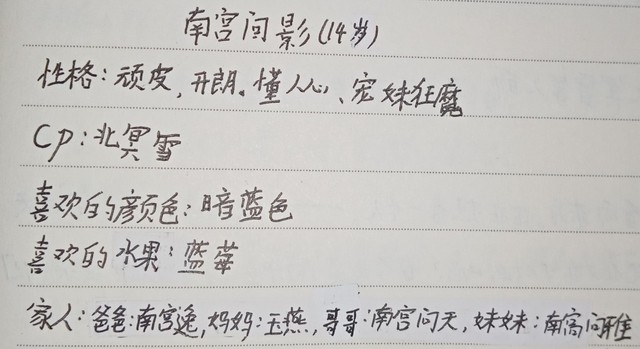 南宫问影(14岁)
性格:顽皮,开朗。懂人心、宠妹狂魔
Cp:北冥雪
喜欢的颜色:暗蓝色
喜欢的水果:蓝莓
家人:爸爸:南宫逸,妈妈:玉燕,哥哥:南宫问天,妹妹:南宫问雅